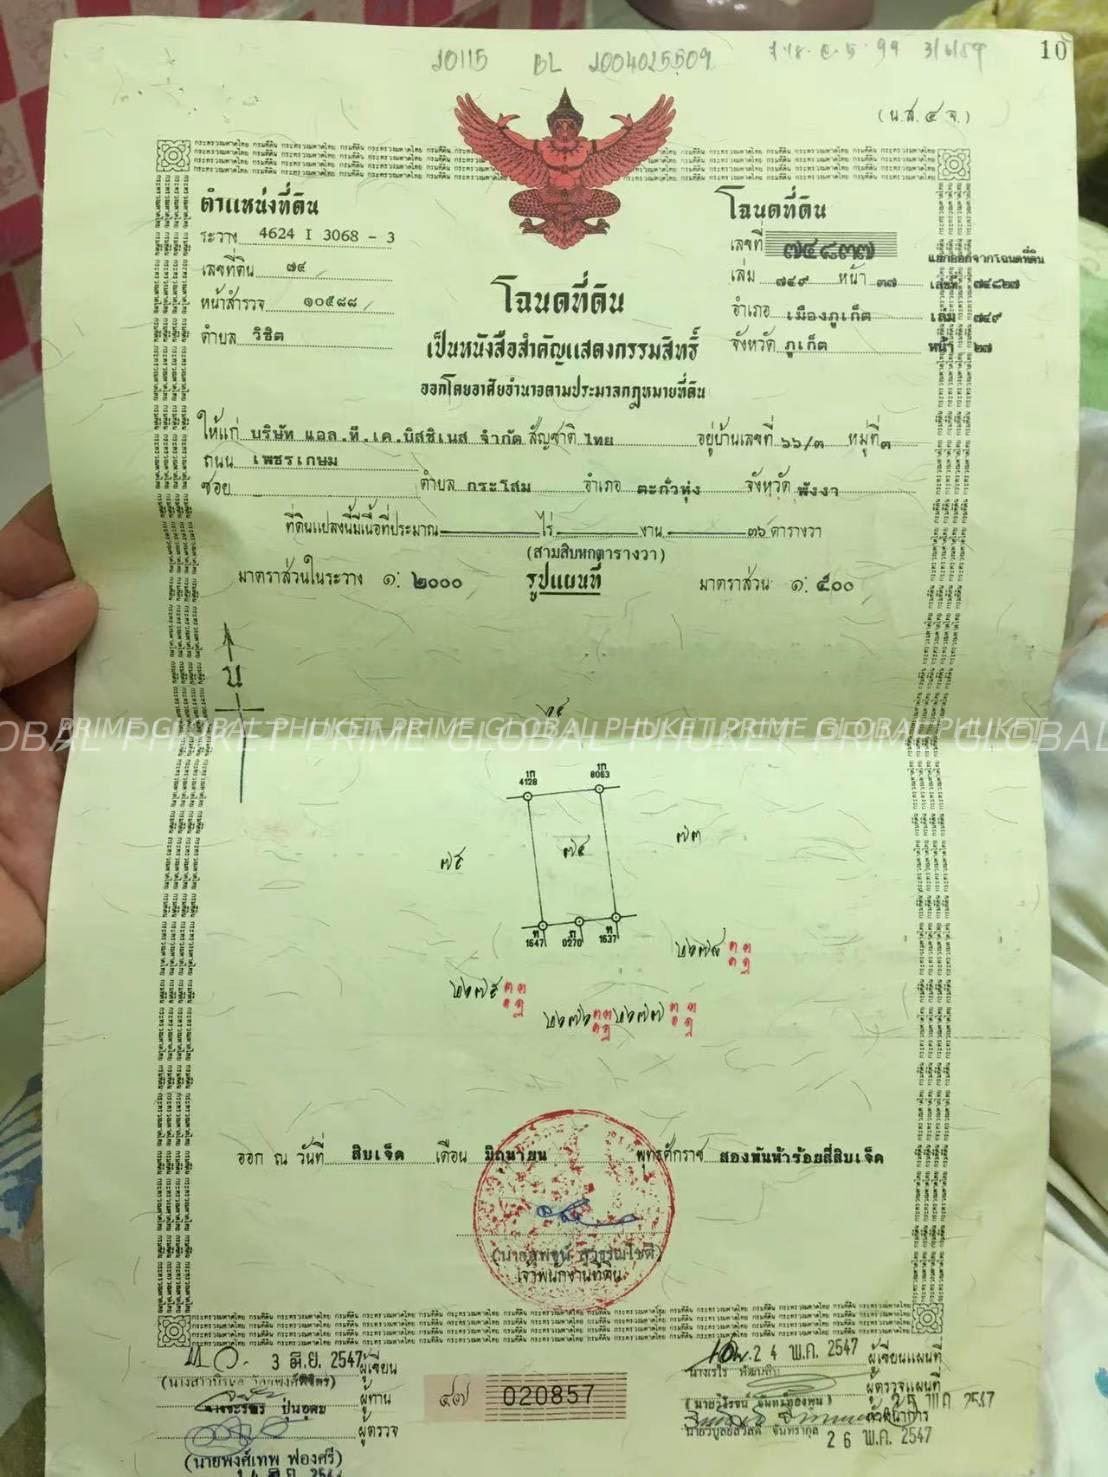 10115 BL 2004025509 3/6/59 10
(น.ส.๔ จ.)
ตำแหน่งที่ดิน
ระวาง 4624 I 3068 - 3
เลขที่ดิน ๗๔
หน้าสำรวจ ๑๐๕๘๘
ตำบล วิชิต
โฉนดที่ดิน
เลขที่ ๗๔๘๓๗
เล่ม ๗๔๙ หน้า ๓๗
อำเภอ เมืองภูเก็ต
จังหวัด ภูเก็ต
แยกออกจากโฉนดที่ดิน
เลขที่ ๗๔๘๒๗
เล่ม ๗๔๙
หน้า ๒๗
โฉนดที่ดิน
เป็นหนังสือสำคัญแสดงกรรมสิทธิ์
ออกโดยอาศัยอำนาจตามประมวลกฎหมายที่ดิน
ให้แก่ บริษัท แอล.ที.เค.บิสซิเนส จำกัด สัญชาติ ไทย อยู่บ้านเลขที่ ๖๖/๓ หมู่ที่ ๓
ถนน เพชรเกษม
ซอย ตำบล กระโสม อำเภอ ตะกั่วทุ่ง จังหวัด พังงา
ที่ดินแปลงนี้มีเนื้อที่ประมาณ ไร่ งาน ๓๖ ตารางวา
(สามสิบหกตารางวา)
มาตราส่วนในระวาง ๑: ๒๐๐๐ รูปแผนที่ มาตราส่วน ๑: ๕๐๐
น
PRIME GLOBAL PHUKET PRIME GLOBAL PHUKET PRIME GLOBAL PHUKET
OBAL PHUKET PRIME GLOBAL PHUKET PRIME GLOBAL
1ก 4128
1ก 8063
๗๔
๗๕
๗๓
ท 1647
ก 0270
ท 1637
ออก ณ วันที่ สิบเจ็ด เดือน มิถุนายน พุทธศักราช สองพันห้าร้อยสี่สิบเจ็ด
เจ้าพนักงานที่ดิน
3 มิ.ย. 2547 ผู้เขียน
ปุ่นอุดม ผู้ทาน
ผู้ตรวจ
(นายพงศ์เทพ ฟองศรี)
020857
24 พ.ค. 2547 ผู้เขียนแผนที่
ผู้ตรวจแผนที่
25 พ.ค. 2547
26 พ.ค. 2547